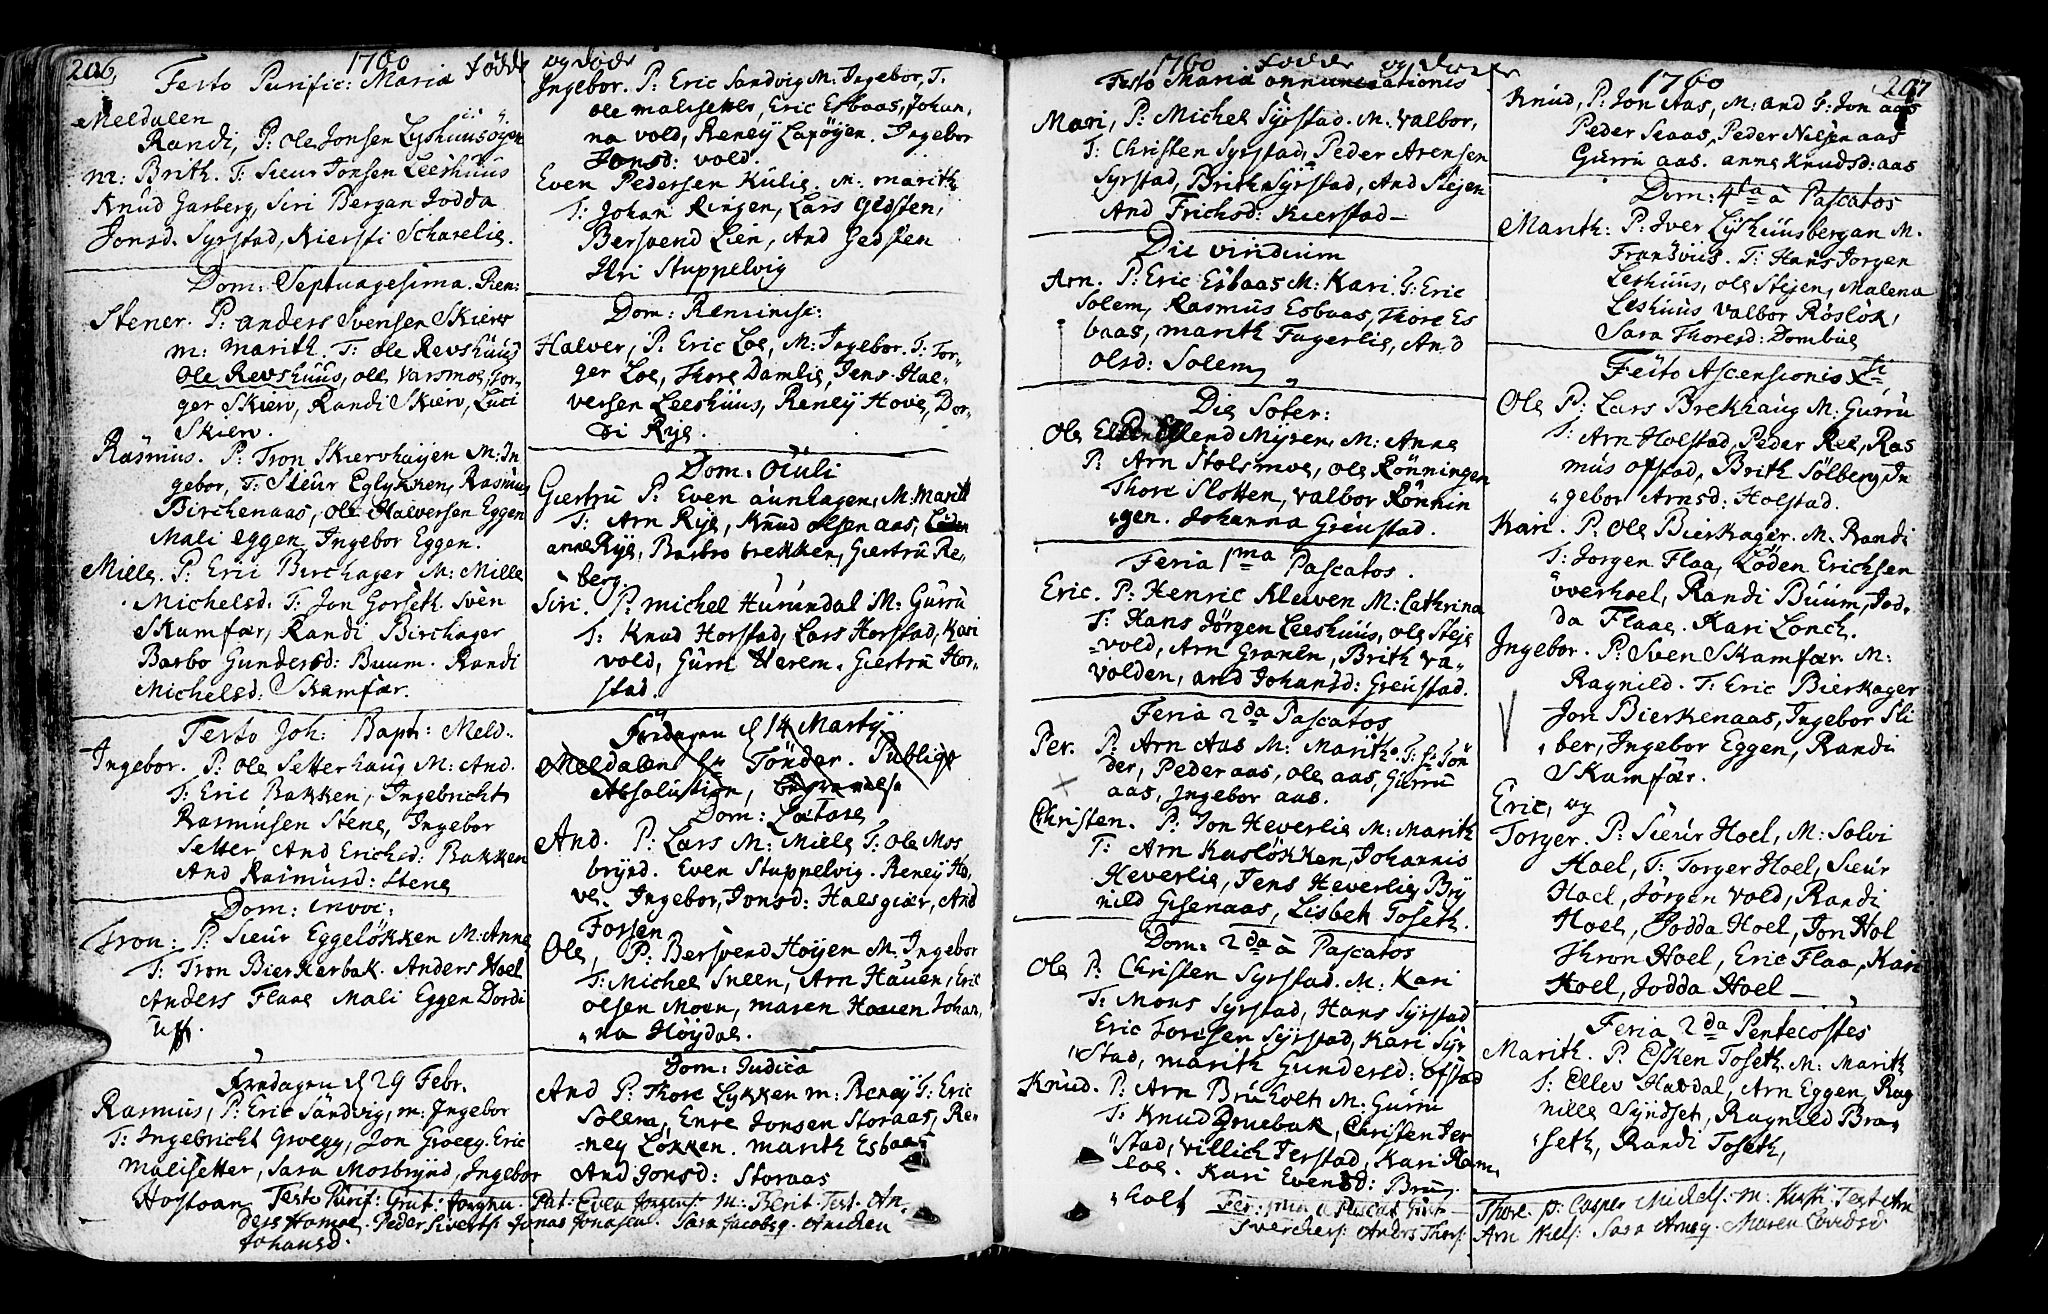 206,
1760 Fødde og døde
Festo Purific: Mariæ
Meldalen
Randi, P: Ole Jonsen Lyshuusøyen
M: Brith. T: Sieur Jonsen Leeshuus
Knud Garberg, Siri Bergan Jodda
Jonsd. Syrstad, Kiersti Scharelie.
Dom: Septuagesima. Ren:
Stener. P: Anders Svensen Skierv
M: Marith. T: Ole Revshuus
Ole Revshuus, Ole Varsmoe, Tor-
ger Skierv, Randi Skierv, Luci
Skierv.
Rasmus. P: Tron Skiervhøyen M: In
gebor, T: Sieur Eglykken, Rasmus
Birchenaas, Ole Halversen Eggen
Mali Eggen Ingebor Eggen.
Mille. P: Eric Birchager M: Mille
Michelsd. T: Jon Gorseth. Sven
Skamfær, Randi Birchager
Barbo Gundersd: Buum. Randi
Michelsd: Skamfær.
Festo Joh: Bapt: Meld:
Ingebor. P: Ole Setterhaug M: And.
T: Eric Bakken, Ingebricht
Rasmusen Stene, Ingebor
Setter And Erichsd: Bakken
And Rasmusd: Stene
Dom: Invoc:
Tron: P: Sieur Eggeløkken M: Anne
T: Tron Bierkerbak. Anders Hoel
Anders Flaae Mali Eggen Dordi
Uff.
Fredagen d 29 Febr.
Rasmus, P: Eric Sandvig, M: Ingebor
T: Ingebricht Groegg, Jon Groegg. Eric
Malisetter, Sara Mosbrynd, Ingebor
Hostoan Festo Purif: Grut: Jorghu. Pat: Even Jorgens: M: Berit Test. An-
ders Hamoe. Peder Sivertss Jonas Jonassen. Sara Jacobsg. Anichen
Johansd.
Ingebor. P: Eric Sandvig M: Ingebor, T.
Ole Malisetter, Eric Esbaas, Johan,
na Vold, Reney Lapøyen. Ingebor
Jonsd: Vold.
Even Pedersen Kulie. M: Marith
T: Johan Ringen, Lars Gedsten,
Bersvend Lien, And Gedsten
Ilri Stuppelvig
Dom: Reminisc:
Halver, P: Eric Loe, M: Ingebor. T: Tor-
ger Loe, Thore Damlie, Jens Hal-
versen Leeshuus, Reney Hove, Dor-
di Rye.
Dom: Oculi
Giertru P: Even Aunhagen. M: Marith
T: Arn Rye, Knud Olsen Aas, Loden
Anne Rye, Barbro Brekken, Giertru Re-
berg.
Siri. P: Michel Hurundal M: Gurru
T: Knud Horstad, Lars Horstad, Kari
Vold, Gurru Herem. Giertru Hor-
stad.
Fredagen d 14 Martij
Meldalen Hr Tønder. Publiqe
Absolution,
Dom: Lætare
And. P: Lars M: Mille T: Ole Mos
brynd. Even Stuppelvig. Reney Ho,
ve. Ingebor, Jonsd: Halsgiær, And
Forsen
Ole, P: Bersvend Høyen M. Ingebor
T: Michel Sneen, Arn Hauen, Eric
Olsen Moen, Maren Hauen Johan,
na Høydal.
Dom: Judica
And P: Thore Lykken M: Reney T: Eric
Solem, Enre Jonsen Storaas, Re-
ney Løkken. Marith Esbaas
And Jonsd: Storaas
1760 Fødde og døde
Festo Mariæ Annunciationis
Mari, P: Michel Syrstad. M: Valbor,
T: Christen Syrstad, Peder Arensen
Syrstad, Brith Syrstad, And Stejen
And Frichsd: Kierstad
Die Viridium
Arn. P: Eric Esbaas M: Kari. T: Eric
Solem, Rasmus Esbaas, Thore Es
baas, Marith Fagerlie, And
Olsd: Solem,
Die Soter:
Ole Ellend Myren. M: Anne
P: Arn Stolsmoe, Ole Rønningen
Thore Slotten, Valbor Rønnin
gen. Johanna Greustad.
Feria 1ma Pascatos.
Eric. P: Henric Klewen M: Cathrina
T: Hans Jørgen Leeshuus, Ole Steje
vold, Arn Granen, Brith Va-
volden, And Johansd: Greustad.
Feria 2da Pascatos
Per. P: Arn Aas M: Marith. T: Hr Tøn
der, Peder Aas, Ole Aas, Gurru
Aas, Ingebor Aas.
Christen. P: Jon Heverlie M: Marith
T: Arn Kasløkken, Johannis
Heverlie, Jens Heverlie, Bry
nild Gisenaas, Lisbeth Toseth.
Dom: 2da à Pascatos
Ole P: Christen Syrstad. M: Kari
T: Mons Syrstad, Hans Syrstad
Eric Toresen Syrstad, Kari Syr
stad, Marith Gundersd: Ofstad
Knud. P: Arn Bruholt M: Gurru
T: Knud Druebak, Christen Jer
stad, Villich Jerstad, Kari Ram,
loe. Kari Evensd: Bru,
holt Fer: 1ma a Pascat Grut
Sverchers: Anders Thors:
1760 207
Knud, P: Jon Aas, M: And T: Jon Aas
Peder Seaas, Peder Nilsen Aas
Gurru Aas. Anne Knudsd: Aas
Dom: 4ta à Pascatos
Marith: P: Iver Lyshuusbergan M.
Fransviis. T: Hans Jorgen
Leshuus, Ole Stejen, Malena
Leshuus, Valbor Røsløk,
Sara Thoresd: Dombue
Festo Ascensionis Xti
Ole P: Lars Brekhaug M: Gurru
T: Arn Holstad, Peder Ree, Ras
mus Ofstad, Brith Solberg, In
gebor Arnsd: Holstad.
Kari. P: Ole Bierkager. M: Randi
T: Jorgen Flaa, Løden Erichsen
Øverhoel, Randi Buum, Jod-
da Flaae. Kari Lonch.
Ingebor. P: Sven Skamfær. M:
Ragnild. T: Eric Bierkager
Jon Bierkenaas, Ingebor Sli
ber, Ingebor Eggen, Randi
Skamfær.
Eric, og
Torger. P: Sieur Hoel, M: Solvi
Hoel, T: Torger Hoel, Sieur
Hoel, Jorgen Vold, Randi
Hoel, Jodda Hoel, Jon Hol
Thron Hoel, Eric Flaa, Kari
Hoel, Jodda Hoel
Feria 2da Pentecostes
Marith. P: Esken Toseth. M: Marith
T: Ellev Haudal, Arn Eggen, Rag
nille Syndset, Ragnild Bra-
seth, Randi Toseth,
Thore P: Casper Michels: M: Kirsti Test Arn
Arn Niels: Sara Arnsg. Maren Lovidsd.